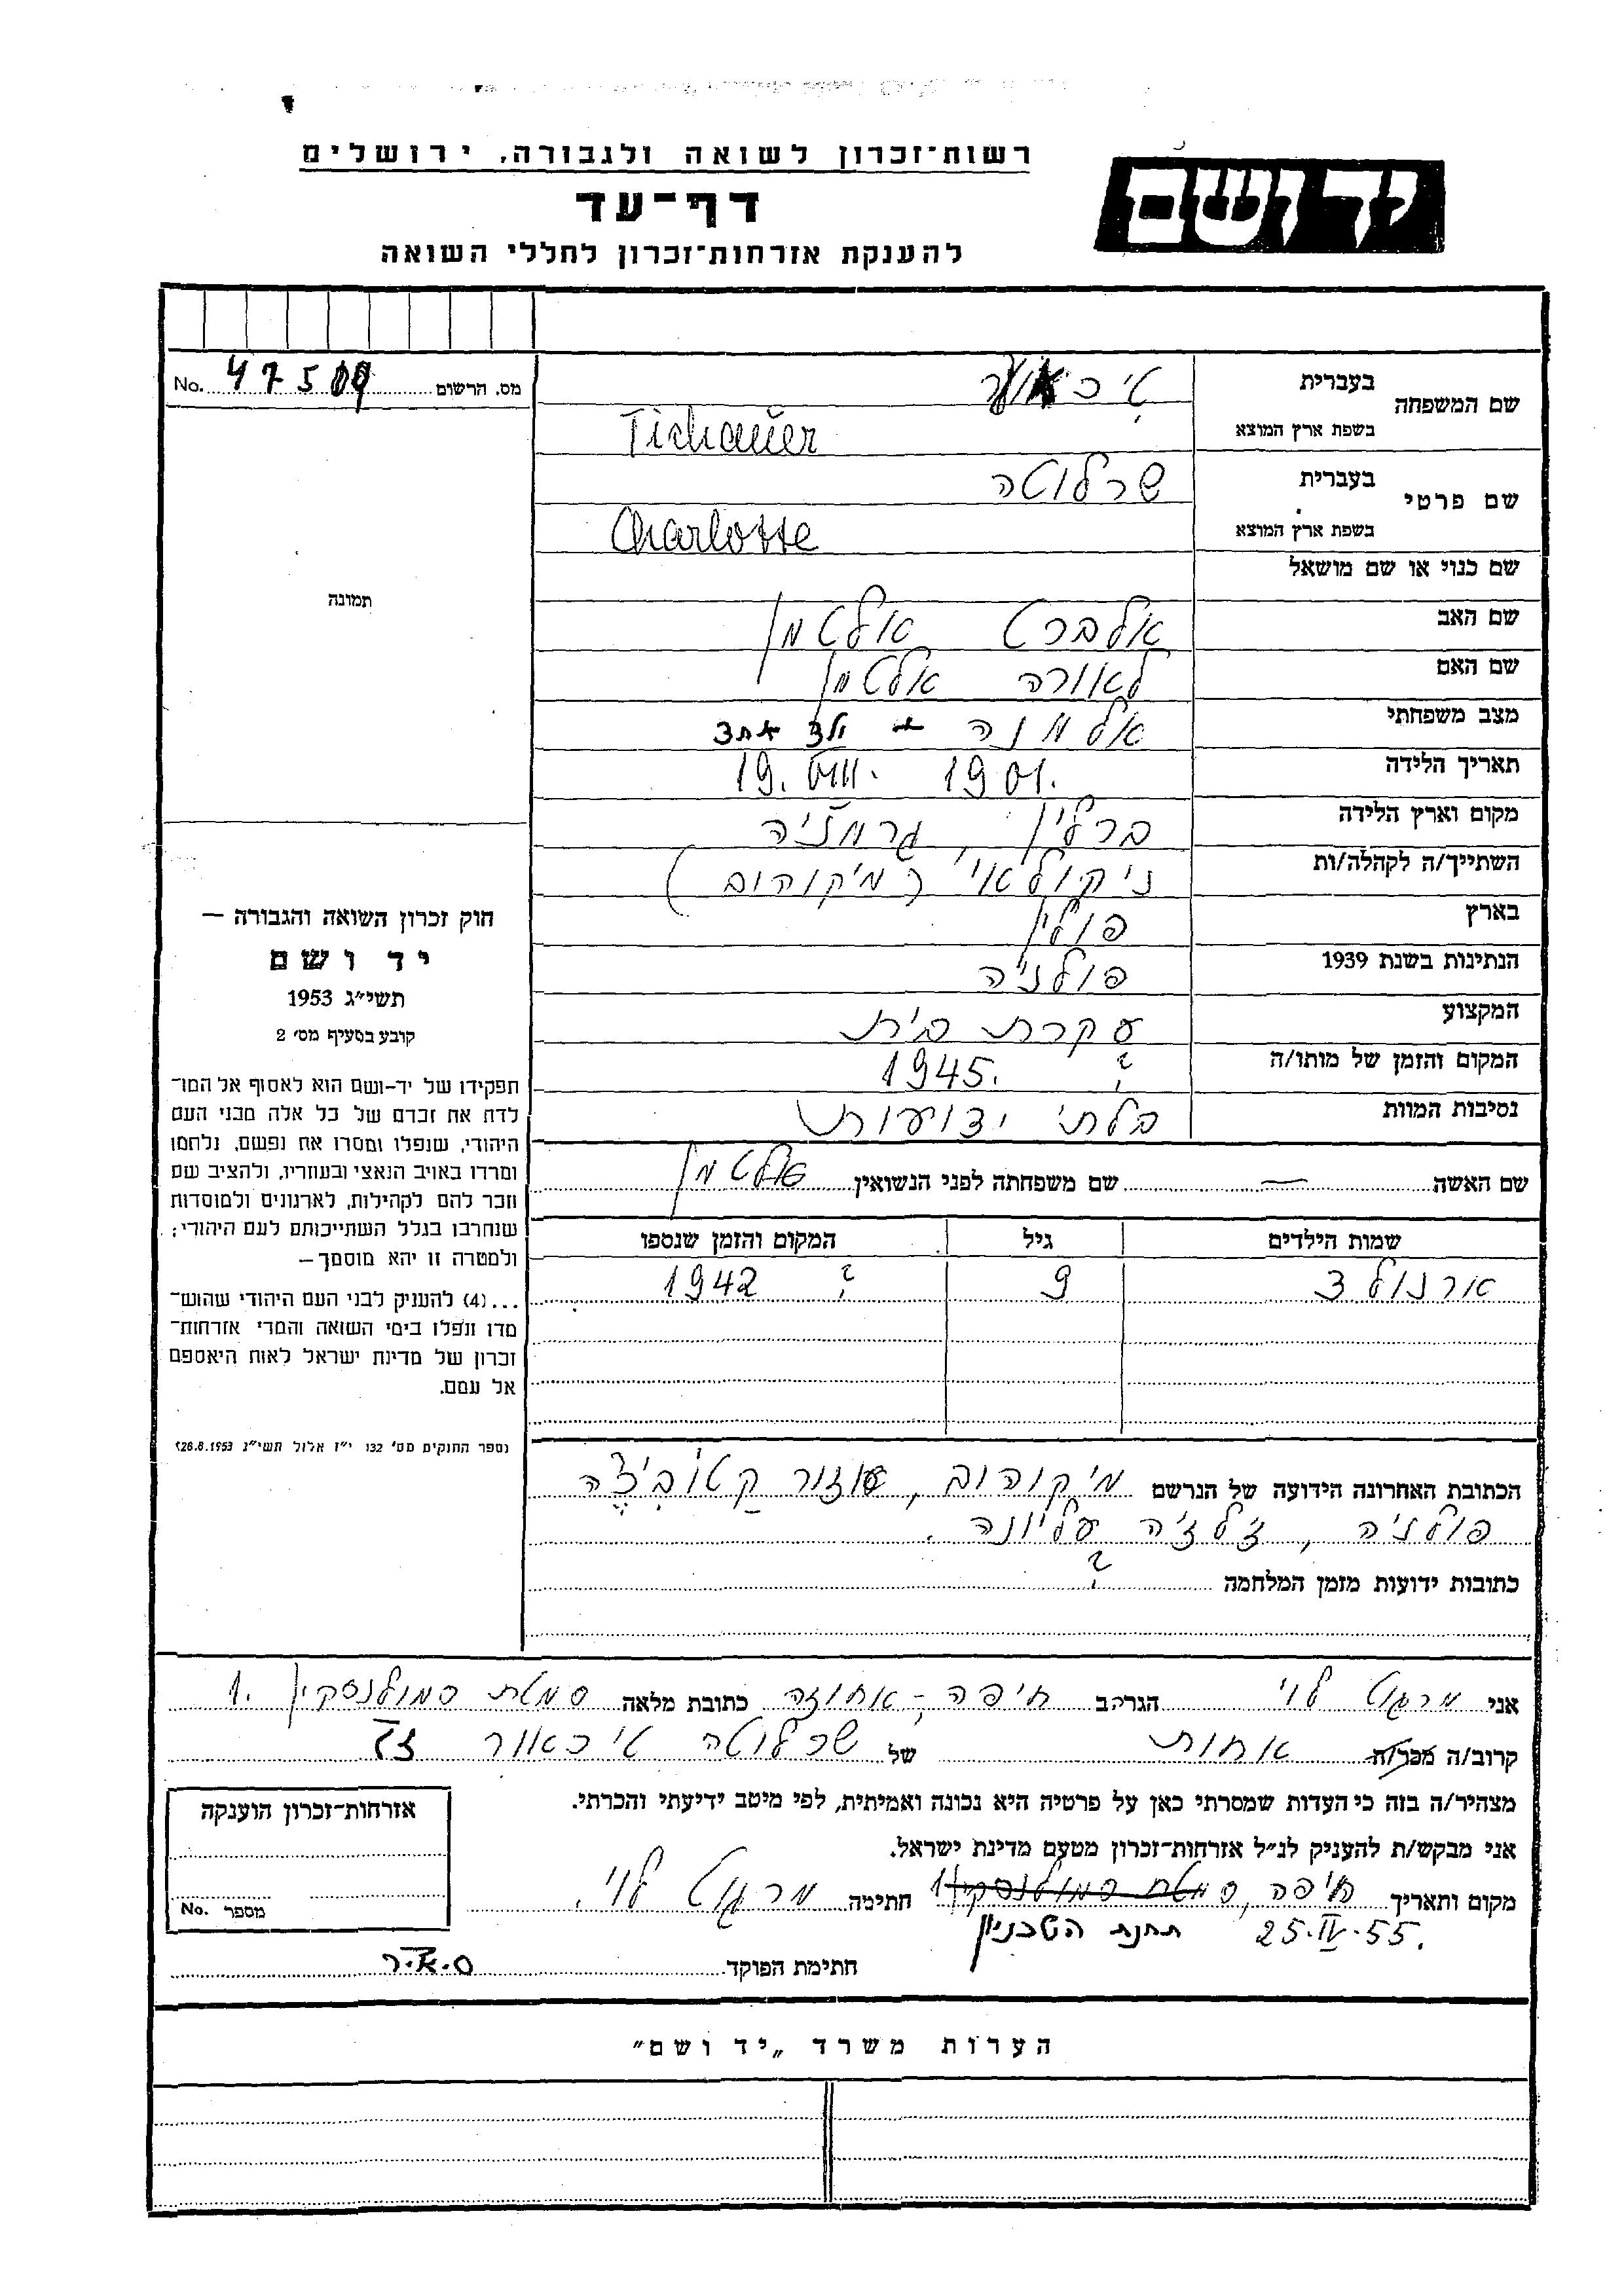 רשות־זכרון לשואה ולגבורה, ירושלים
יד ושם
דף־עד
להענקת אזרחות־זכרון לחללי השואה
מס. הרשום No.
שם המשפחה
בעברית
בשפת ארץ המוצא Tichauer
שם פרטי
בעברית שרלוטה
בשפת ארץ המוצא Charlotte
שם כנוי או שם מושאל
שם האב אלברט אלטמן
שם האם לאורה אלטמן
מצב משפחתי אלמנה + ילד אחד
תאריך הלידה 19. VIII. 1901.
מקום וארץ הלידה ברלין, גרמניה
השתייך/ה לקהלה/ות ניקולאי (מיקוהוב)
בארץ פולין
הנתינות בשנת 1939 פולניה
המקצוע עקרת בית
המקום והזמן של מותו/ה ? 1945.
נסיבות המוות בלתי ידועות
תמונה
חוק זכרון השואה והגבורה —
יד ושם
תשי״ג 1953
קובע בסעיף מס׳ 2
תפקידו של יד-ושם הוא לאסוף אל המו־
לדת את זכרם של כל אלה מבני העם
היהודי, שנפלו ומסרו את נפשם, נלחמו
ומרדו באויב הנאצי ובעוזריו, ולהציב שם
וזכר להם לקהילות, לארגונים ולמוסדות
שנחרבו בגלל השתייכותם לעם היהודי;
ולמטרה זו יהא מוסמך—
...(4) להעניק לבני העם היהודי שהוש־
מדו ונפלו בימי השואה והמרי אזרחות־
זכרון של מדינת ישראל לאות היאספם
אל עמם.
(ספר החוקים מס׳ 132 י״ז אלול תשי״ג 28.8.1953)
שם האשה — שם משפחתה לפני הנשואין אלטמן
שמות הילדים גיל המקום והזמן שנספו
ארנולד 9 ? 1942
הכתובת האחרונה הידועה של הנרשם מיקוהוב, אזור קטוביצה
פולניה, שלזיה עליונה.
כתובות ידועות מזמן המלחמה ?
אני מרגוט לוי הגר/ה ב חיפה - אחוזה כתובת מלאה סמטת סמולנסקין 1.
קרוב/ה מכר/ה אחות של שרלוטה טיכאור ז״ל
מצהיר/ה בזה כי העדות שמסרתי כאן על פרטיה היא נכונה ואמיתית, לפי מיטב ידיעתי והכרתי.
אני מבקש/ת להעניק לנ״ל אזרחות־זכרון מטעם מדינת ישראל.
מקום ותאריך חיפה, סמטת סמולנסקין 1 חתימה מרגוט לוי.
25.IV.55.
חתימת הפוקד
אזרחות־זכרון הוענקה
מספר No.
הערות משרד „יד ושם״